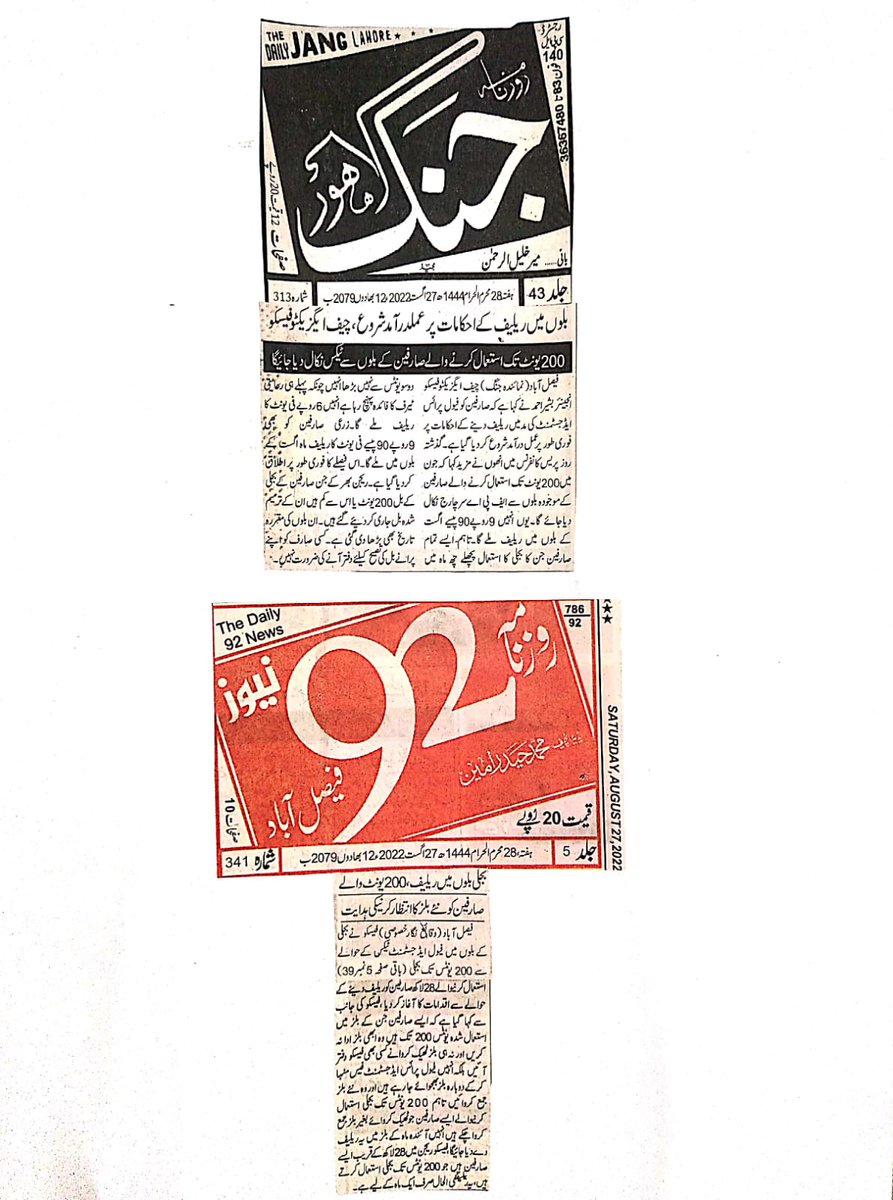 THE DAILY JANG LAHORE
رجسٹرڈ
سی پی ایل
140
فون 83 تا 36367480
روزنامہ
جنگ
لاہور
صفحات 12 قیمت 20 روپے
بانی ..... میر خلیل الرحمٰن
جلد 43
ہفتہ 28 محرم الحرام 1444ھ 27 اگست 2022ء 12 بھادوں 2079 ب
شمارہ 313
بلوں میں ریلیف کے احکامات پر عملدرآمد شروع، چیف ایگزیکٹو فیسکو
200 یونٹ تک استعمال کرنے والے صارفین کے بلوں سے ٹیکس نکال دیا جائیگا
فیصل آباد (نمائندہ جنگ) چیف ایگزیکٹو فیسکو
انجینئر بشیر احمد نے کہا ہے کہ صارفین کو فیول پرائس
ایڈجسٹمنٹ کی مد میں ریلیف دینے کے احکامات پر
فوری طور پر عمل درآمد شروع کر دیا گیا ہے۔ گذشتہ
روز پریس کانفرنس میں انھوں نے مزید کہا کہ جون
میں 200 یونٹ تک استعمال کرنے والے صارفین
کے موجودہ بلوں سے ایف پی اے سرچارج نکال
دیا جائے گا۔ یوں انہیں 9 روپے 90 پیسے اگست
کے بلوں میں ریلیف ملے گا۔ تاہم، ایسے تمام
صارفین جن کا بجلی کا استعمال پچھلے چھ ماہ میں
دو سو یونٹس سے نہیں بڑھا انہیں چونکہ پہلے ہی رعایتی
ٹیرف کا فائدہ پہنچ رہا ہے انہیں 6 روپے فی یونٹ کا
ریلیف ملے گا۔ زرعی صارفین کو بھی
9 روپے 90 پیسے فی یونٹ کا ریلیف ماہ اگست کے
بلوں میں ملے گا۔ اس فیصلے کا فوری طور پر اطلاق
کر دیا گیا ہے۔ ریجن بھر کے جن صارفین کے بجلی
کے بل 200 یونٹ یا اس سے کم ہیں ان کے ترمیم
شدہ بل جاری کر دیئے گئے ہیں۔ ان بلوں کی مقررہ
تاریخ بھی بڑھا دی گئی ہے۔ کسی صارف کو اپنے
پرانے بل کی تصحیح کیلئے دفتر آنے کی ضرورت نہیں۔
The Daily
92 News
786
92
روزنامہ
92
نیوز
فیصل آباد
محمد حیدر امین
صفحات 10
قیمت 20 روپے
SATURDAY, AUGUST 27, 2022
جلد 5
ہفتہ، 28 محرم الحرام 1444ھ 27 اگست 2022ء، 12 بھادوں 2079 ب
شمارہ 341
بجلی بلوں میں ریلیف، 200 یونٹ والے
صارفین کو نئے بلز کا انتظار کرنیکی ہدایت
فیصل آباد (وقائع نگار خصوصی) فیسکو نے بجلی
کے بلوں میں فیول ایڈجسٹمنٹ ٹیکس کے حوالے
سے 200 یونٹس تک بجلی (باقی صفحہ 5 نمبر 39)
استعمال کرنیوالے 28 لاکھ صارفین کو ریلیف دینے کے
حوالے سے اقدامات کا آغاز کر دیا، فیسکو کی جانب
سے کہا گیا ہے کہ ایسے صارفین جن کے بلز میں
استعمال شدہ یونٹس 200 تک ہیں وہ ابھی بلز ادا نہ
کریں اور نہ ہی بلز ٹھیک کروانے کسی بھی فیسکو دفتر
آئیں بلکہ انہیں فیول پرائس ایڈجسٹمنٹ فیس منہا
کر کے دوبارہ بلز بھجوائے جا رہے ہیں اور وہ نئے بلز
جمع کروائیں تاہم 200 یونٹس تک بجلی استعمال
کرنیوالے ایسے صارفین جو ٹھیک کروائے بغیر بلز جمع
کروا چکے ہیں انہیں آئندہ ماہ کے بلز میں یہ ریلیف
دے دیا جائیگا، فیسکو ریجن میں 28 لاکھ کے قریب ایسے
صارفین ہیں جو 200 یونٹس تک بجلی استعمال کرتے
ہیں، یہ ریلیف فی الحال صرف ایک ماہ کے لیے ہے۔